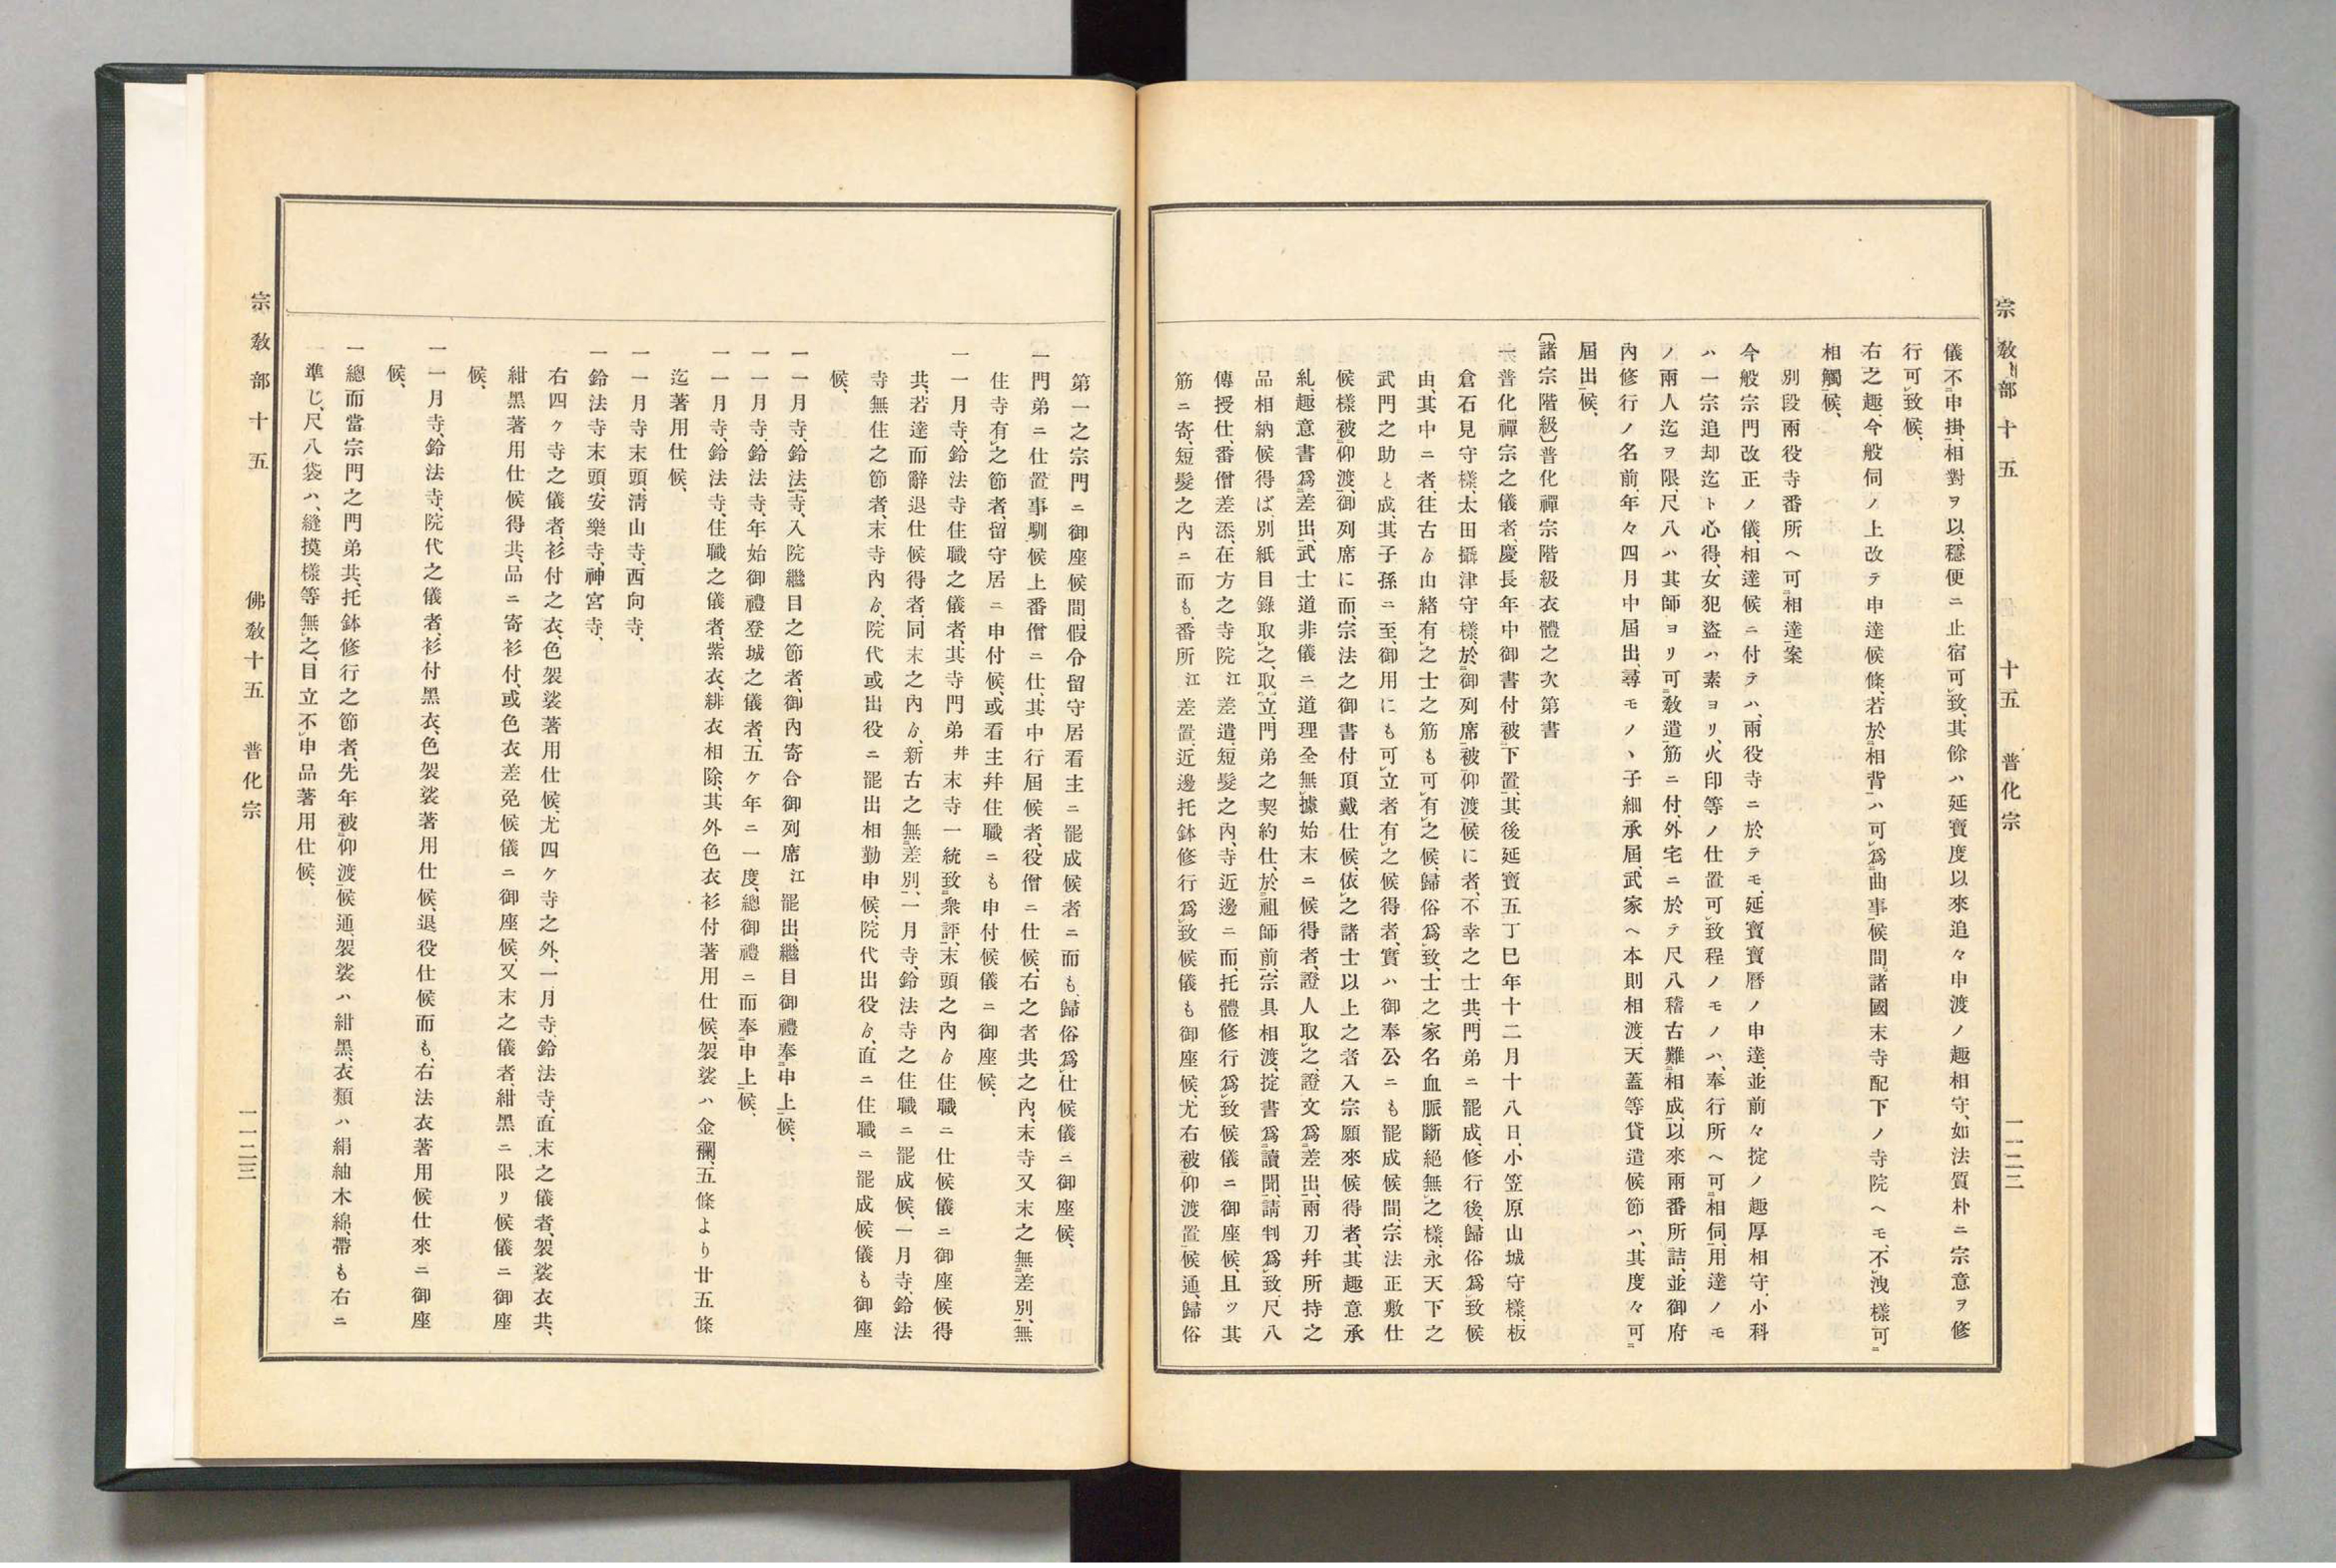 宗教部十五 十五 普化宗 一一二二
儀不申掛、相對ヲ以、穩便ニ止宿可致、其餘ハ延寶度以來追々申渡ノ趣相守、如法質朴ニ宗意ヲ修
行可致候、
右之趣、今般伺ノ上改テ申達候條、若於相背ハ可爲曲事候間、諸國末寺配下ノ寺院ヘモ、不洩樣可
相觸候、
別段兩役寺番所ヘ可相達案
今般宗門改正ノ儀、相達候ニ付テハ、兩役寺ニ於テモ、延寶寶曆ノ申達、並前々掟ノ趣厚相守、小科
ハ一宗追却迄ト心得、女犯盜ハ素ヨリ、火印等ノ仕置可致程ノモノハ、奉行所ヘ可相伺、用達ノモ
ノ兩人迄ヲ限、尺八ハ其師ヨリ可敎遣筋ニ付、外宅ニ於テ尺八稽古難相成、以來兩番所詰、並御府
內修行ノ名前、年々四月中屆出、尋モノヽ子細承屆、武家ヘ本則相渡、天蓋等貸遣候節ハ、其度々可
屆出候、
〔諸宗階級〕普化禪宗階級衣體之次第書
一普化禪宗之儀者、慶長年中御書付被下置、其後延寶五丁巳年十二月十八日、小笠原山城守樣、板
倉石見守樣、太田攝津守樣、於御列席被仰渡候に者、不幸之士共、門弟ニ罷成、修行後、歸俗爲致候
由、其中ニ者、往古ゟ由緖有之士之筋も可有之候、歸俗爲致、士之家名血脈斷絕無之樣、永天下之
武門之助と成、其子孫ニ至、御用にも可立者有之候得者、實ハ御奉公ニも罷成候間、宗法正敷仕
候樣被仰渡、御列席に而、宗法之御書付頂戴仕候、依之諸士以上之者入宗願來候得者、其趣意承
糺、趣意書爲差出、武士道非儀ニ道理全無據始末ニ候得者、證人取之、證文爲差出、兩刀幷所持之
品相納候得ば、別紙目錄取之、取立、門弟之契約仕、於祖師前、宗具相渡、掟書爲讀聞、請判爲致、尺八
傳授仕、番僧差添、在方之寺院江差遣、短髮之內、寺近邊ニ而、托體修行爲致候儀ニ御座候、且ツ其
筋ニ寄、短髮之內ニ而も、番所江差置、近邊托鉢修行爲致候儀も御座候、尤右被仰渡置候通、歸俗
第一之宗門ニ御座候間、假令留守居看主ニ罷成候者ニ而も、歸俗爲仕候儀ニ御座候、
一門弟ニ仕置事馴候上番僧ニ仕、其中行屆候者、役僧ニ仕候、右之者共之內、末寺又末之無差別、無
住寺有之節者、留守居ニ申付候、或看主幷住職ニも申付候儀ニ御座候、
一一月寺、鈴法寺住職之儀者、其寺門弟幷末寺一統致衆評、末頭之內ゟ住職ニ仕候儀ニ御座候得
共、若達而辭退仕候得者、同末之內ゟ、新古之無差別、一月寺、鈴法寺之住職ニ罷成候、一月寺、鈴法
寺無住之節者、末寺內ゟ、院代或出役ニ罷出相勤申候、院代出役ゟ、直ニ住職ニ罷成候儀も御座
候、
一一月寺、鈴法寺、入院繼目之節者、御內寄合御列席江罷出繼目御禮奉申上候、
一一月寺、鈴法寺、年始御禮登城之儀者、五ケ年ニ一度、總御禮ニ而奉申上候、
一一月寺、鈴法寺、住職之儀者、紫衣、緋衣相除、其外色衣衫付著用仕候、袈裟ハ金襴、五條より廿五條
迄著用仕候、
一一月寺末頭、淸山寺、西向寺、
一鈴法寺末頭、安樂寺、神宮寺、
右四ケ寺之儀者、衫付之衣、色袈裟著用仕候、尤四ケ寺之外、一月寺鈴法寺、直末之儀者、袈裟衣共、
紺黑著用仕候得共、品ニ寄衫付、或色衣差免候儀ニ御座候、又末之儀者、紺黑ニ限リ候儀ニ御座
候、
一一月寺、鈴法寺、院代之儀者、衫付黑衣、色袈裟著用仕候、退役仕候而も、右法衣著用候仕來ニ御座
候、
一總而當宗門之門弟共、托鉢修行之節者、先年被仰渡候通、袈裟ハ紺黑、衣類ハ絹紬木綿、帶も右ニ
準じ、尺八袋ハ、縫摸樣等無之、目立不申品著用仕候、
宗敎部十五 佛敎十五 普化宗 一一二三